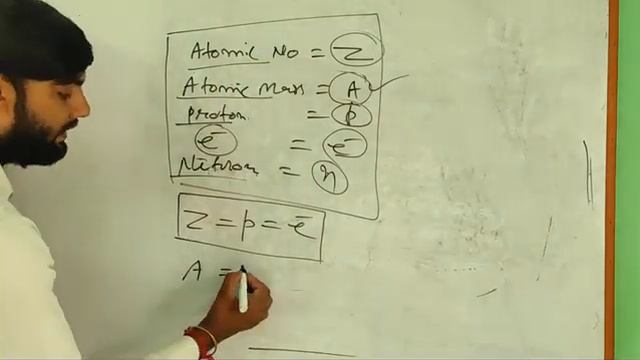 Atomic No = Z
Atomic Mass = A
proton = p
e⁻ = e⁻
Neutron = n
Z = p = e⁻
A =